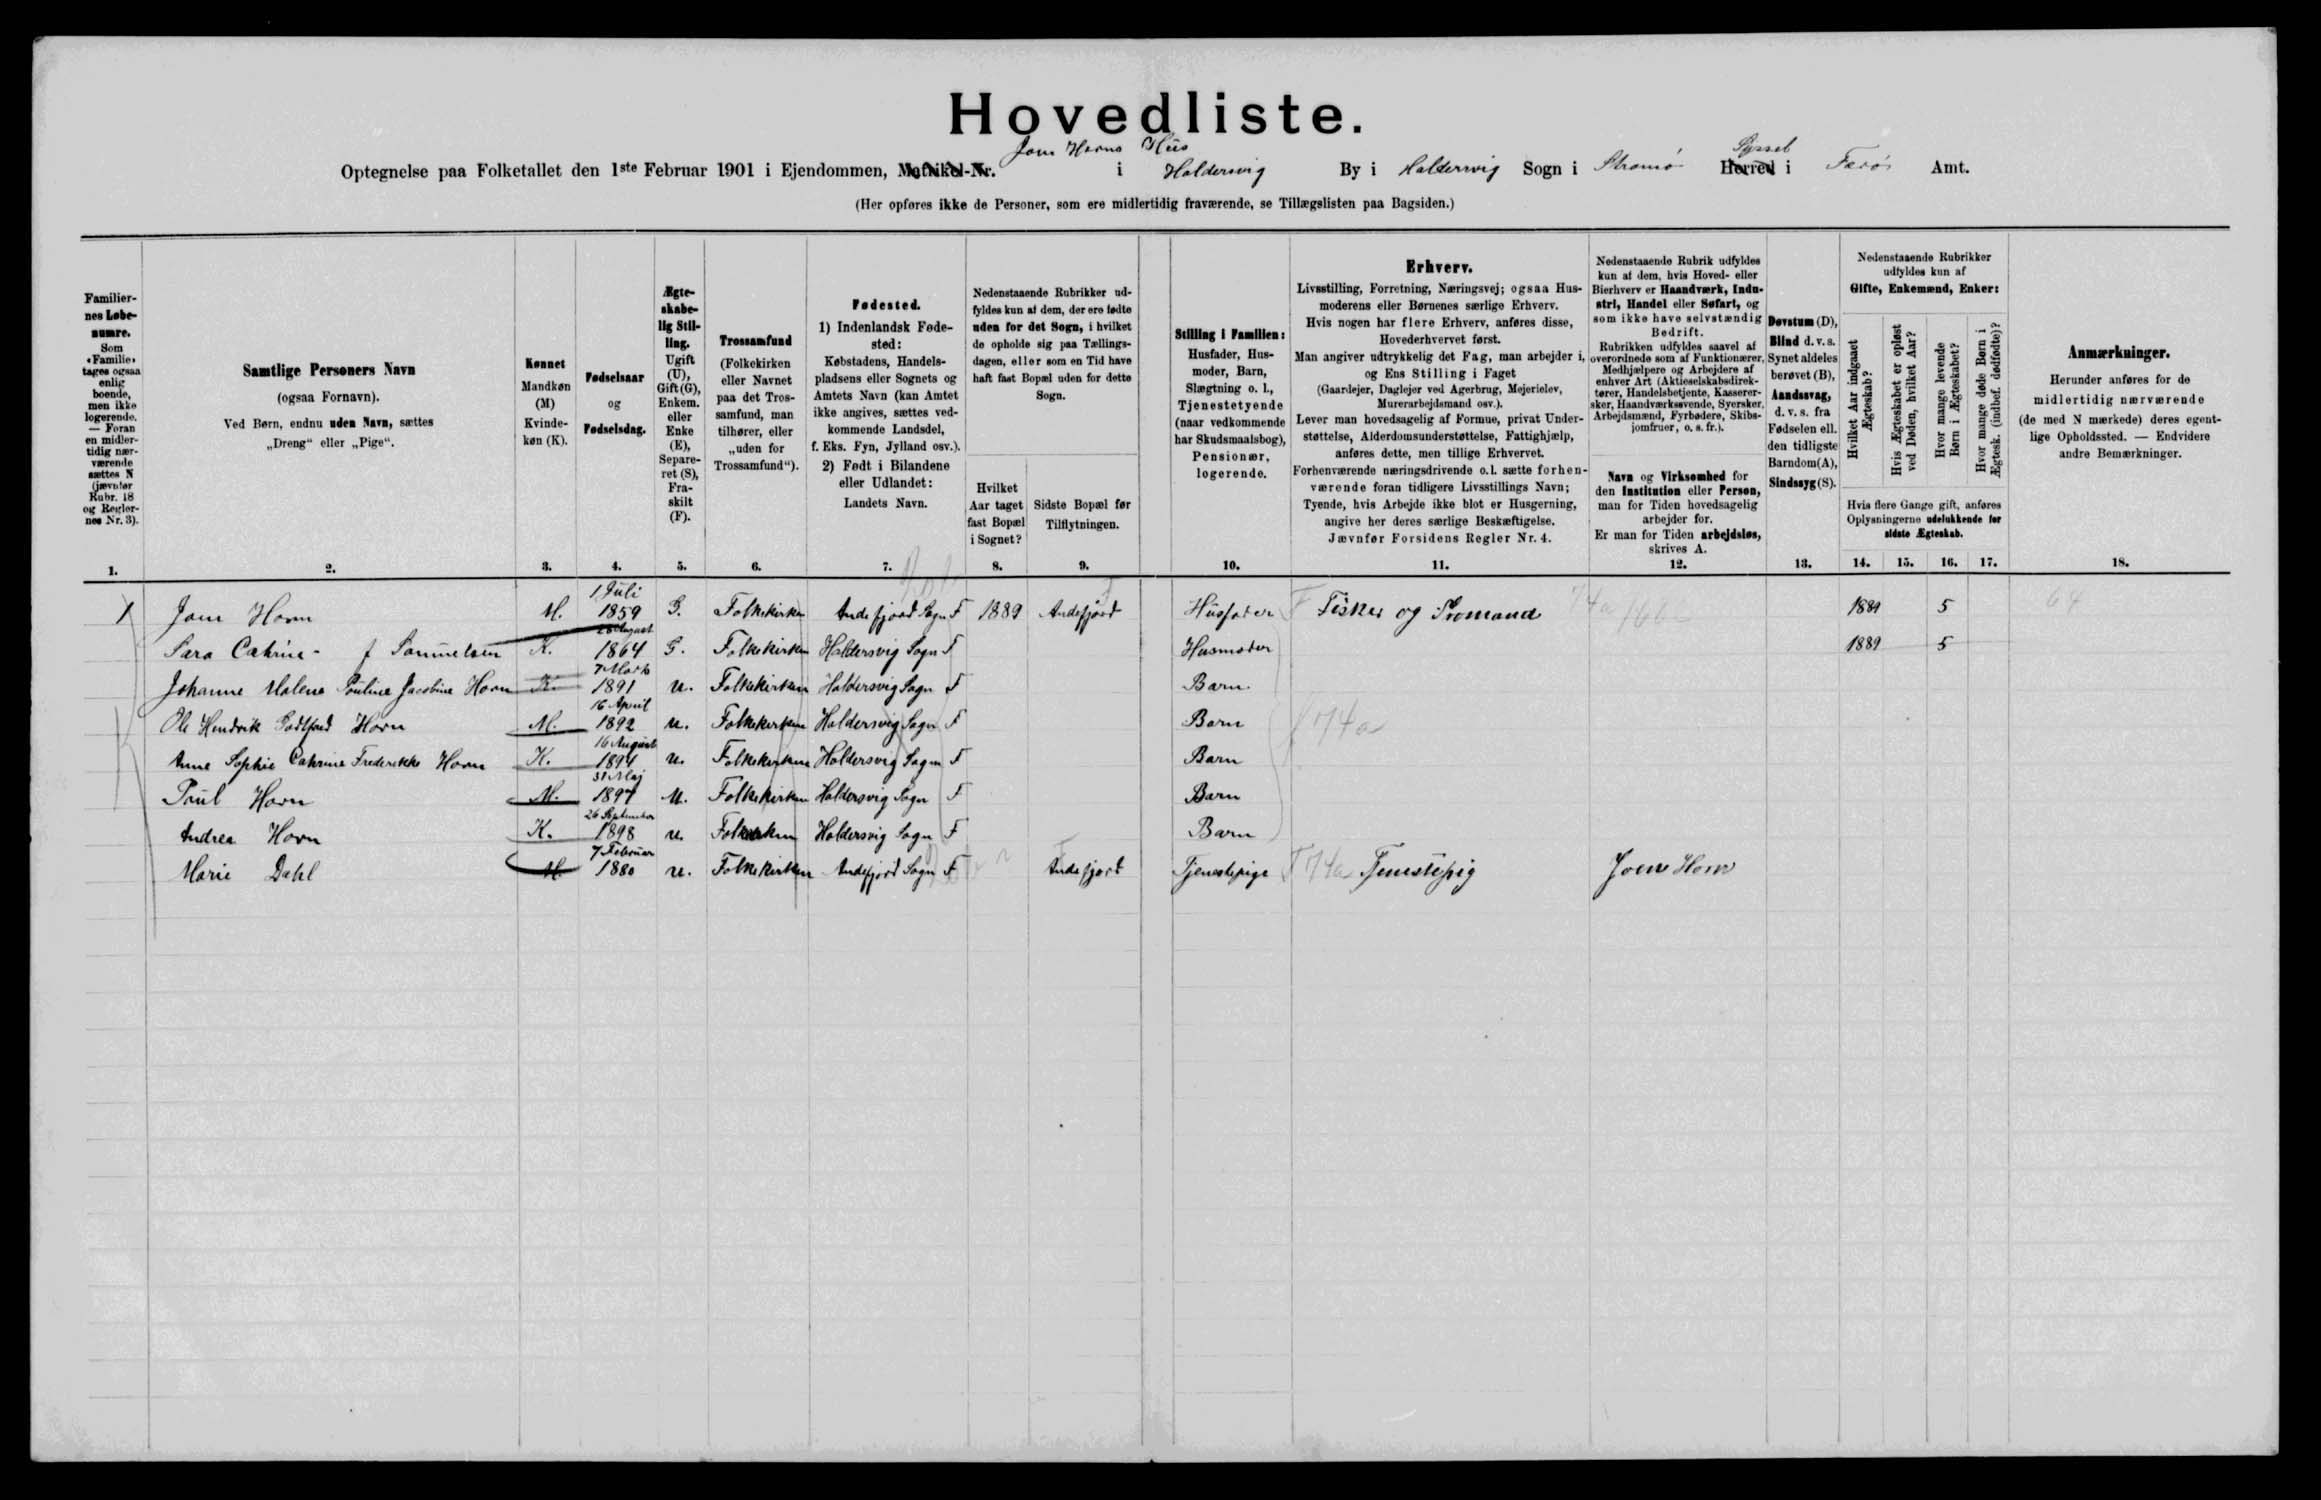 Hovedliste.
Optegnelse paa Folketallet den 1ste Februar 1901 i Ejendommen, Matrikel-Nr. Joen Horns Hüs i Haldersvig By i Haldersvig Sogn i Strømø Herred Syssel i Færø Amt.
(Her opføres ikke de Personer, som ere midlertidig fraværende, se Tillægslisten paa Bagsiden.)
Familiernes Løbenumre.
Som «Familie» tages ogsaa enlig boende, men ikke logerende. — Foran en midlertidig nærværende sættes N (jævnfør Rubr. 18 og Reglernes Nr. 3).
1.
Samtlige Personers Navn
(ogsaa Fornavn).
Ved Børn, endnu uden Navn, sættes
„Dreng“ eller „Pige“.
2.
Kønnet
Mandkøn (M)
Kvindekøn (K).
3.
Fødselsaar
og
Fødselsdag.
4.
Ægteskabelig Stilling.
Ugift (U), Gift (G), Enkem. eller Enke (E), Separeret (S), Fraskilt (F).
5.
Trossamfund
(Folkekirken eller Navnet paa det Trossamfund, man tilhører, eller „uden for Trossamfund“).
6.
Fødested.
1) Indenlandsk Fødested:
Købstadens, Handelspladsens eller Sognets og Amtets Navn (kan Amtet ikke angives, sættes vedkommende Landsdel, f. Eks. Fyn, Jylland osv.).
2) Født i Bilandene eller Udlandet:
Landets Navn.
7.
Nedenstaaende Rubrikker udfyldes kun af dem, der ere fødte uden for det Sogn, i hvilket de opholde sig paa Tællingsdagen, eller som en Tid have haft fast Bopæl uden for dette Sogn.
Hvilket Aar taget fast Bopæl i Sognet?
8.
Sidste Bopæl før Tilflytningen.
9.
Stilling i Familien:
Husfader, Husmoder, Barn, Slægtning o. l., Tjenestetyende (naar vedkommende har Skudsmaalsbog), Pensionær, logerende.
10.
Erhverv.
Livsstilling, Forretning, Næringsvej; ogsaa Husmoderens eller Børnenes særlige Erhverv.
Hvis nogen har flere Erhverv, anføres disse, Hovederhvervet først.
Man angiver udtrykkelig det Fag, man arbejder i, og Ens Stilling i Faget
(Gaardejer, Daglejer ved Agerbrug, Mejerielev, Murerarbejdsmand osv.).
Lever man hovedsagelig af Formue, privat Understøttelse, Alderdomsunderstøttelse, Fattighjælp, anføres dette, men tillige Erhvervet.
Forhenværende næringsdrivende o. l. sætte forhenværende foran tidligere Livsstillings Navn;
Tyende, hvis Arbejde ikke blot er Husgerning, angive her deres særlige Beskæftigelse.
Jævnfør Forsidens Regler Nr. 4.
11.
Nedenstaaende Rubrik udfyldes kun af dem, hvis Hoved- eller Bierhverv er Haandværk, Industri, Handel eller Søfart, og som ikke have selvstændig Bedrift.
Rubrikken udfyldes saavel af overordnede som af Funktionærer, Medhjælpere og Arbejdere af enhver Art (Aktieselskabsdirektører, Handelsbetjente, Kasserersker, Haandværkssvende, Syersker, Arbejdsmænd, Fyrbødere, Skibsjomfruer, o. s. fr.).
Navn og Virksomhed for den Institution eller Person, man for Tiden hovedsagelig arbejder for.
Er man for Tiden arbejdsløs, skrives A.
12.
Døvstum (D), Blind d. v. s. Synet aldeles berøvet (B), Aandssvag, d. v. s. fra Fødselen ell. den tidligste Barndom (A), Sindssyg (S).
13.
Nedenstaaende Rubrikker udfyldes kun af
Gifte, Enkemænd, Enker:
Hvilket Aar indgaaet Ægteskab?
Hvis Ægteskabet er opløst ved Døden, hvilket Aar?
Hvor mange levende Børn i Ægteskabet?
Hvor mange døde Børn i Ægtesk. (indbef. dødfødte)?
Hvis flere Gange gift, anføres Oplysningerne udelukkende for sidste Ægteskab.
14. 15. 16. 17.
Anmærkninger.
Herunder anføres for de midlertidig nærværende (de med N mærkede) deres egentlige Opholdssted. — Endvidere andre Bemærkninger.
18.
1 Joen Horn M. 1 Juli 1859 G. Folkekirken Andefjord Sogn F 1889 Andefjord Husfader Fisker og Tromand 74a 1889 5 64
Sara Cathrine f Samuelsen K. 28 August 1864 G. Folkekirken Haldersvig Sogn F Husmoder 1889 5
Johanne Malene Pouline Jacobine Horn K. 7 Marts 1891 U. Folkekirken Haldersvig Sogn F Barn
Ole Hendrik Godtfred Horn M. 16 April 1892 U. Folkekirken Haldersvig Sogn F Barn 74a
Anne Sophie Cathrine Frederikke Horn K. 16 August 1894 U. Folkekirken Haldersvig Sogn F Barn
Poul Horn M. 31 Maj 1897 U. Folkekirken Haldersvig Sogn F Barn
Andrea Horn K. 26 September 1898 U. Folkekirken Haldersvig Sogn F Barn
Marie Dahl M 7 Februar 1880 U. Folkekirken Andefjord Sogn F Andefjord Tjenestepige 74a Tjenestepig Joen Horn